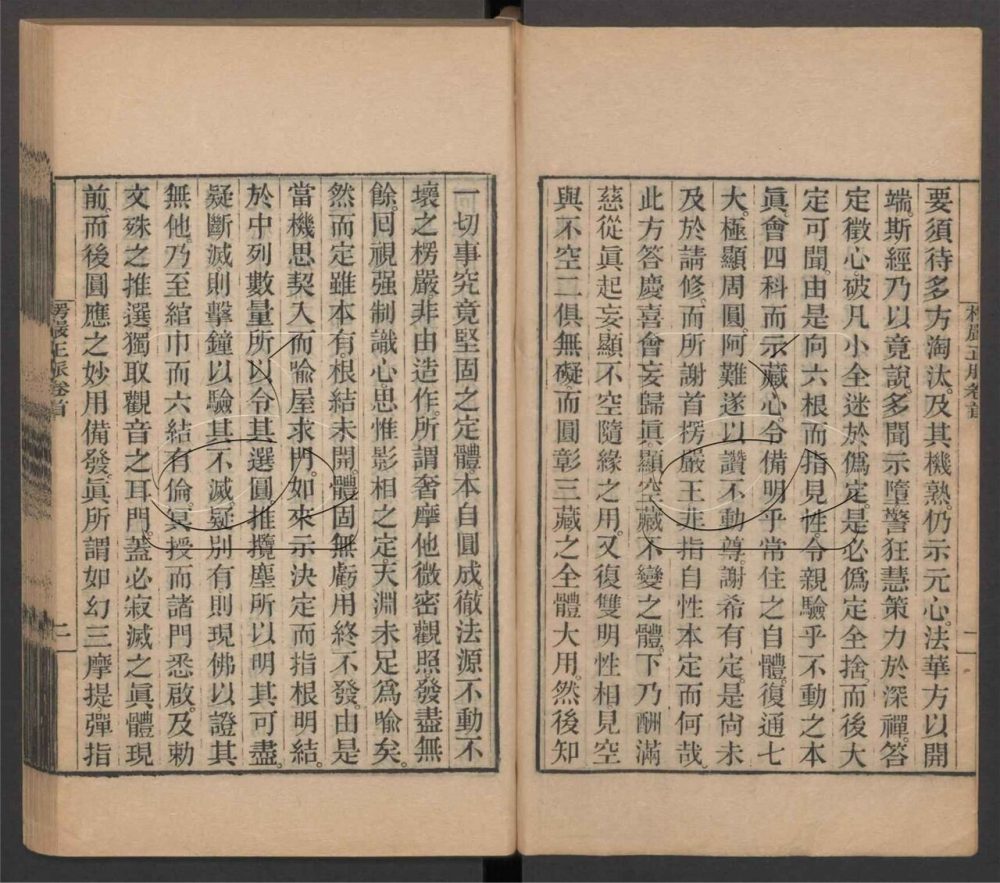 要須待多方淘汰。及其機熟。仍示元心。法華方以開
端。斯經乃以竟說多聞示墮。警狂慧策力於深禪。答
定徵心。破凡小全迷於僞定。是必僞定全捨。而後大
定可聞。由是向六根而指見性。令親驗乎不動之本
眞。會四科而示藏心。令備明乎常住之自體。復通七
大。極顯周圓。阿難遂以讚不動尊。謝希有定。是尙未
及於請修。而所謝首楞嚴王。非指自性本定而何哉。
此方答慶喜會妄歸眞。顯空藏不變之體。下乃酬滿
慈從眞起妄。顯不空隨緣之用。又復雙明性相。見空
與不空二俱無礙。而圓彰三藏之全體大用。然後知
楞嚴正脉卷首
一
一切事究竟堅固之定體。本自圓成。徹法源不動不
壞之楞嚴。非由造作。所謂奢摩他微密觀照。發盡無
餘。囘視强制識心思惟影相之定。天淵未足爲喻矣。
然而定雖本有。根結未開。體固無虧。用終不發。由是
當機思契入而喻屋求門。如來示決定而指根明結。
於中列數量所以令其選圓推攬塵所以明其可盡。
疑斷滅則擊鐘以驗其不滅。疑別有。則現佛以證其
無他。乃至綰巾而六結有倫。冥授而諸門悉啟。及勅
文殊之推選。獨取觀音之耳門。蓋必寂滅之眞體現
前。而後圓應之妙用備發。眞所謂如幻三摩提彈指
楞嚴正脉卷首
二